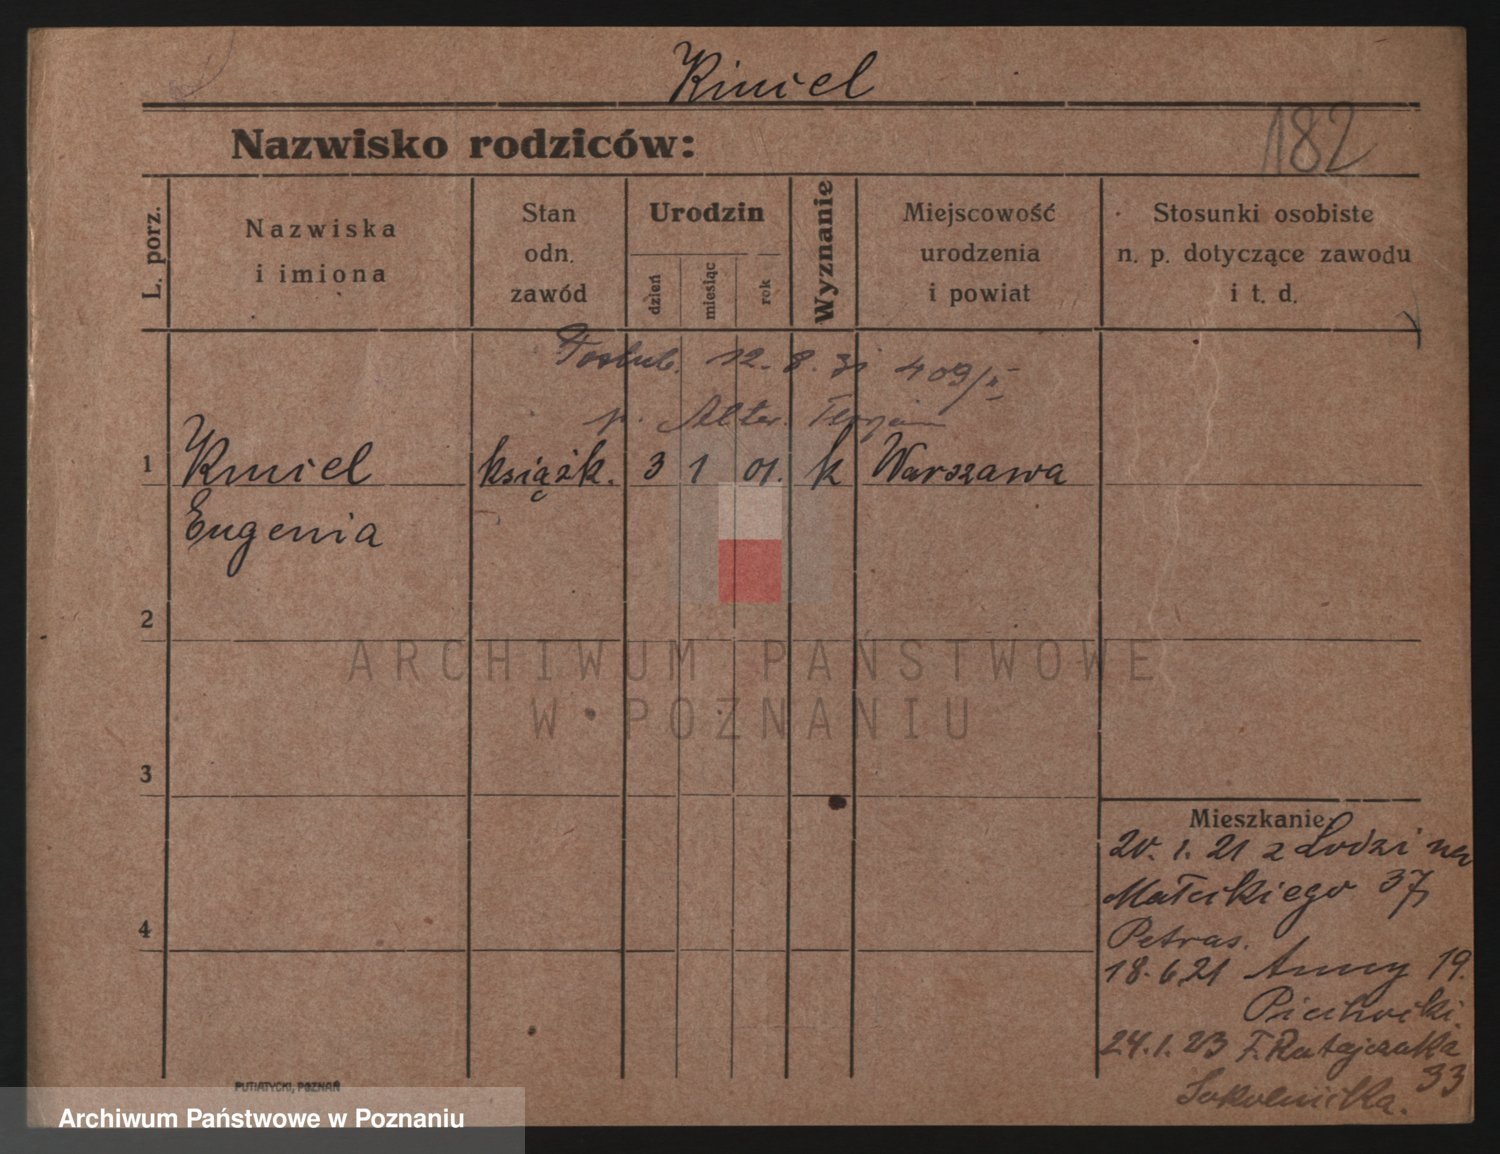 Kmiel
Nazwisko rodziców:
182
L. porz.
Nazwiska
i imiona
Stan
odn.
zawód
Urodzin
dzień
miesiąc
rok
Wyznanie
Miejscowość
urodzenia
i powiat
Stosunki osobiste
n. p. dotyczące zawodu
i t. d.
12. 8. 31 409/II
p.
1 Kmiel książk. 3 1 01. k Warszawa
Eugenia
2
ARCHIWUM PAŃSTWOWE
W POZNANIU
3
Mieszkanie:
20. 1. 21 z Lodzi na
Małeckiego 37
4
Petras.
18. 6 21 Anny 19.
Piechocki
24. 1. 23 F. Ratajczaka
33
Sokolnicka.
PUTIATYCKI, POZNAŃ
Archiwum Państwowe w Poznaniu